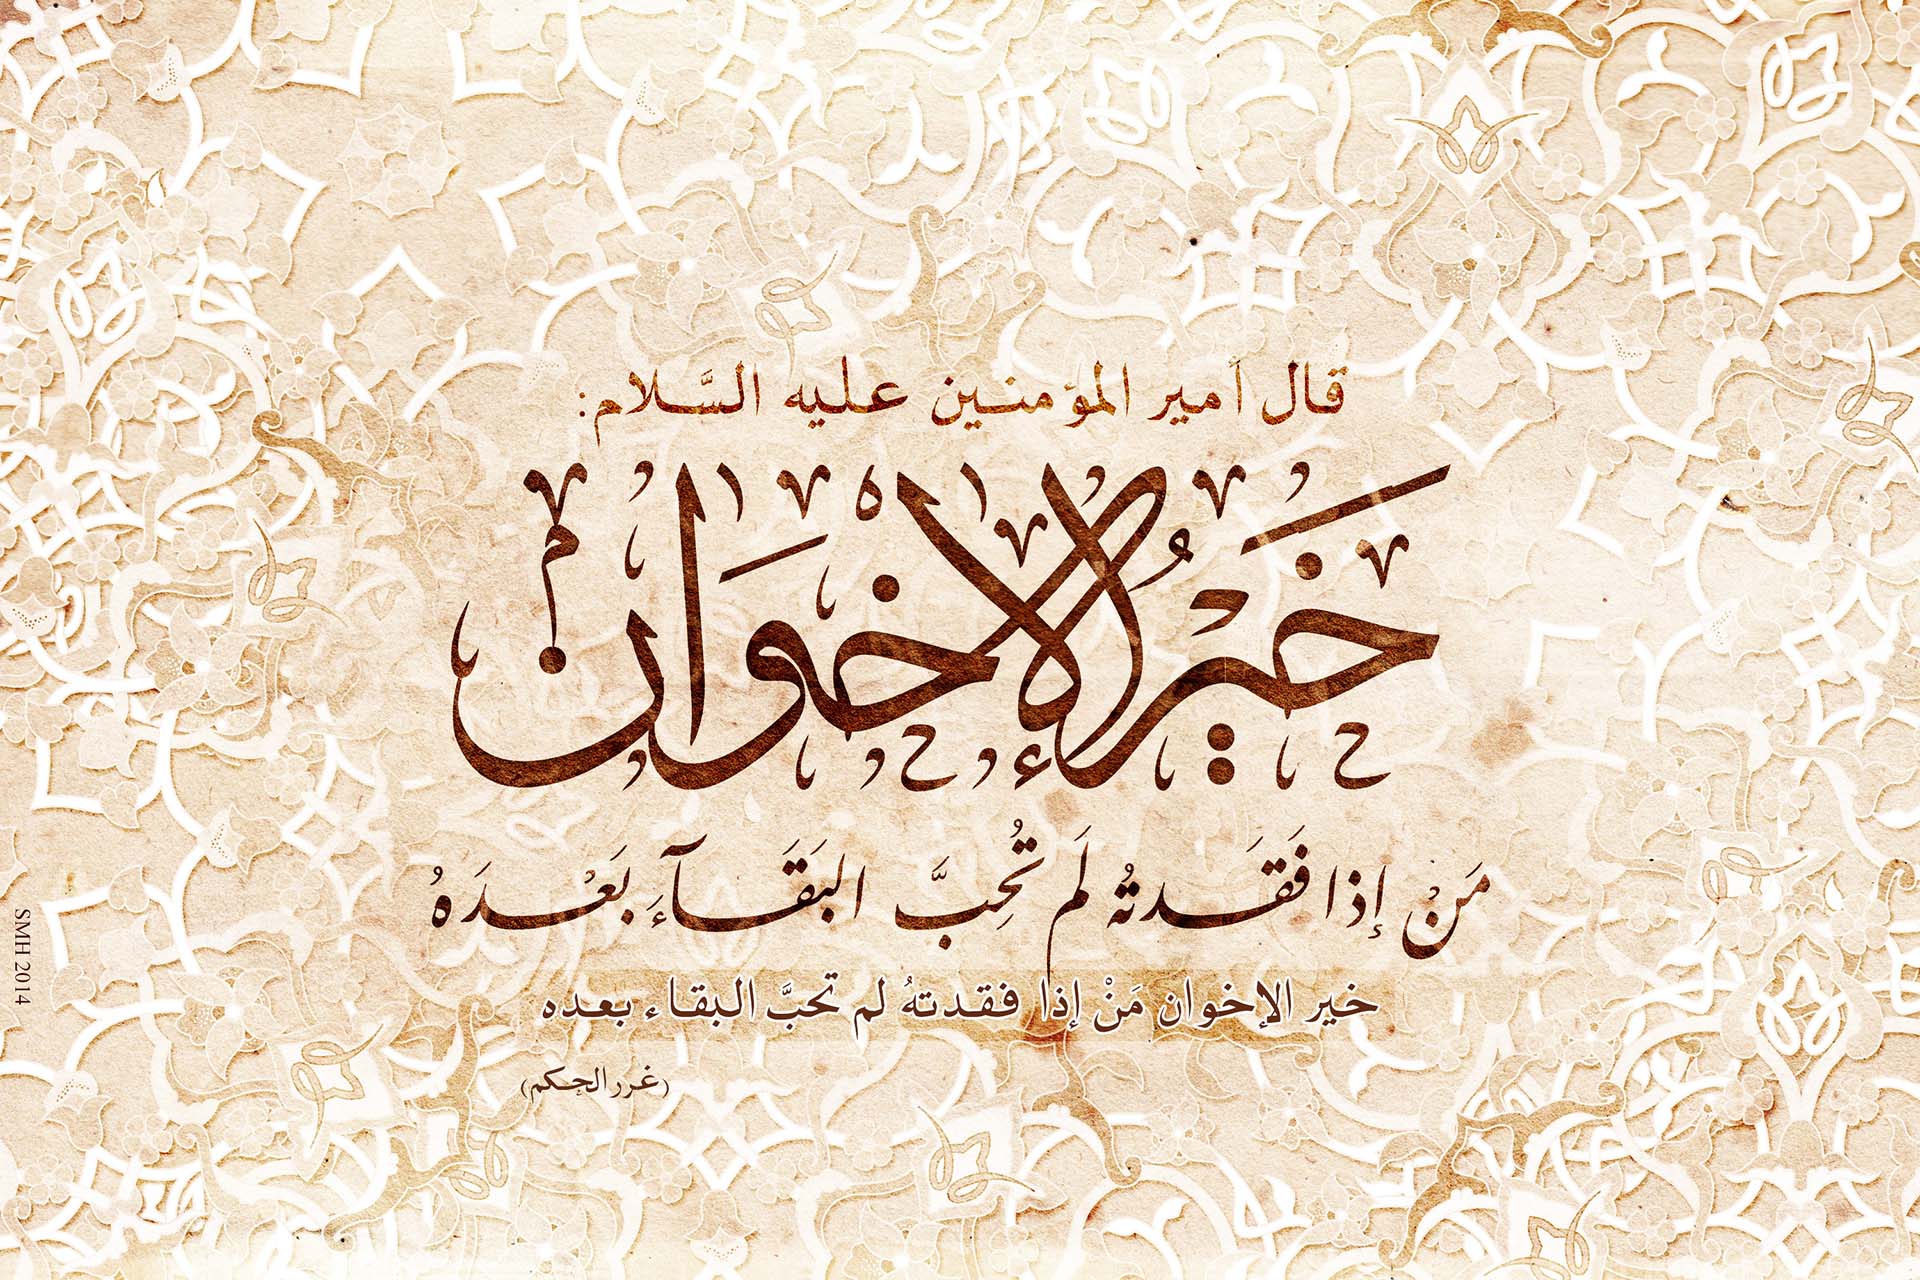 قال أمير المؤمنين عليه السَّلام:
خَيرُ الإخوَان
مَنْ إذا فَقَدتهُ لَم تُحِبَّ البَقَآءَ بَعْدَهُ
خير الإخوان مَنْ إذا فقدتهُ لم تحبَّ البقاء بعده
(غرر الحكم)
SMH 2014